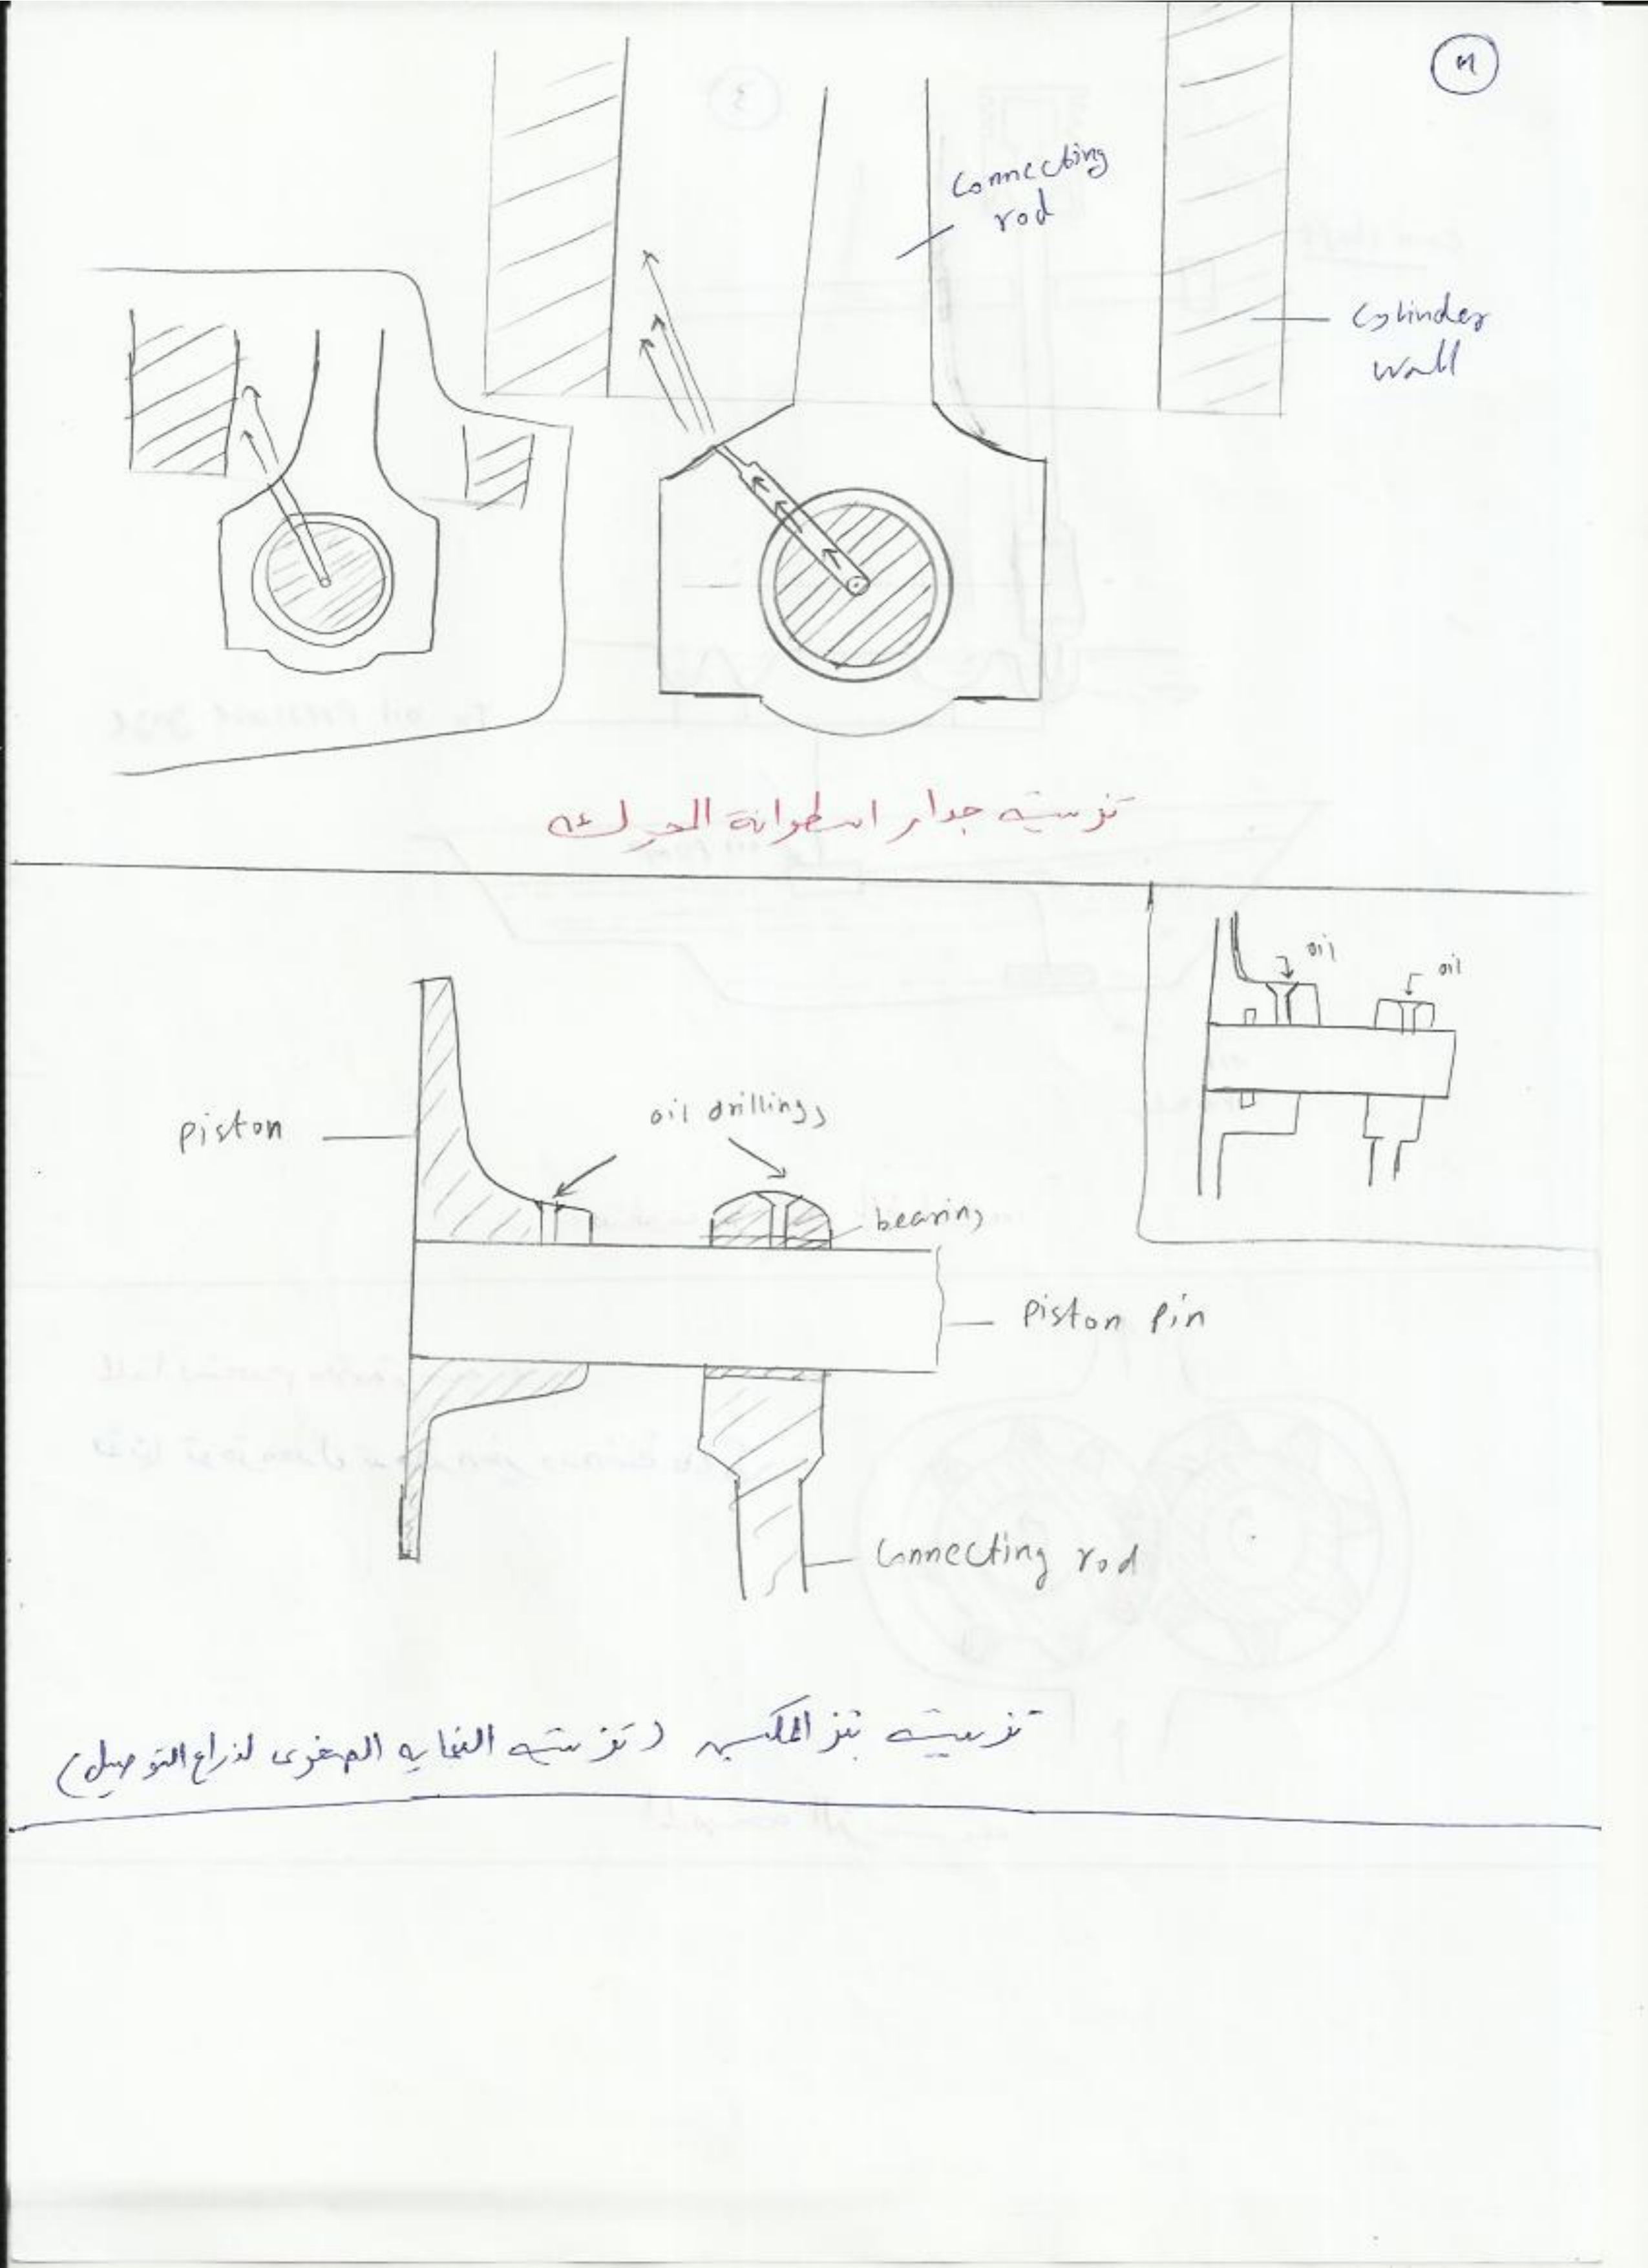 connecting
rod
cylinder
wall
تزييت جدار اسطوانة المحرك
oil
oil
oil drillings
piston
bearing
piston pin
connecting rod
تزييت بنز المكبس (تزييت النهايه الصغرى لذراع التوصيل)